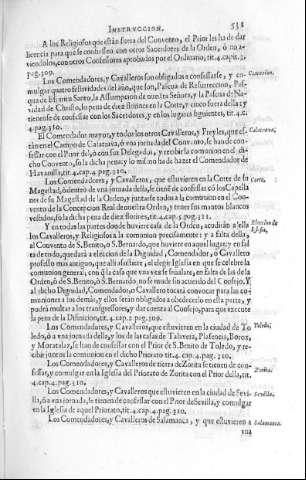 INSTRUCCION. 531
A los Religiosos que están fuera del Convento, el Prior les ha de dar
licencia para que se confiessen con otros Sacerdotes de la Orden, ò no a-
viendolos, con otros Confessores aprobados por el Ordinario, tit.4.capit.3.
pag.309.
Los Comendadores, y Cavalleros son obligados a confessarse, y co-
mulgar quatro festividades del año, que son, Pascua de Resurreccion, Pas-
qua de Espiritu Santo, la Assumpcion de nuestra Señora, y la Pascua de Na-
vidad de Christo, so pena de diez florines en la Corte, y cinco fuera della: y
tienense de confessar con los Sacerdotes, y en los lugares siguientes, tit.4.c.
4.pag.310.
El Comendador mayor, y todos los otros Cavalleros, y Freyles, que es-
tàn en el Campo de Calatrava, ò vna jornada del Convento, se han de con-
fessar con el Prior del, ò con sus Delegados, y recebir la comunion en el di-
cho Convento, so la dicha pena: y lo mismo ha de hazer el Comendador de
tit.4.cap.4.pag.310.
Calatrava.
Los Comendadores, y Cavalleros, que estuvieren en la Corte de su
Magestad, ò dentro de vna jornada della, se tienē de confessar cō los Capella
nes de su Magestad de la Orden, y juntarse todos a la comunion en el Con-
vento de la Concepcion Real de nuestra Orden, y tener sus mantos blancos
vestidos, so la dicha pena de diez florines, tit.4.cap.4.pag.311.
Corte.
Y en todas las partes donde huviere casa de la Orden, acudiràn a ella
los Cavalleros, y Religiosos a la comunion precissamente: y a falta della,
al Convento de S. Benito, ò S. Bernardo, que huviere en aquel lugar; y en fal
ta de todo, quedarà a eleccion de la Dignidad, Comendador, ò Cavallero
professo mas antiguo, que alli assistiere, el elegir Iglesia en que se celebre la
comunion general, con q̃ la casa que vna vez se señalare, en falta de las de la
Orden, ò de S. Benito, ò S. Bernardo, no se mude sin acuerdo del Consejo. Y
al dicho Dignidad, Comendador, ò Cavallero tocarà convocar para las co-
muniones a los demàs, y ellos seràn obligados a obedecerlo en esta parte, y
podrà multar a los transgressores, y dar cuenta al Consejo, para que execute
la pena de la Difinicion, tit.4.cap.2.pag.309.
Los Comendadores, y Cavalleros, que estuvieren en la ciudad de To
ledo, ò a vna jornada della, y los de las casas de Talavera, Plasencia, Borox,
y Moratalaz, se han de confessar con el Prior de S. Benito de Toledo, y re-
cibir juntos la comunion en el dicho Priorato, tit.4.cap.4.pag.310.
Toledo.
Los Comendadores, y Cavalleros de tierra de Zorita se tienen de con-
fessar, y comulgar en la Iglesia del Priorato de Zorita con el Prior della, tit.
4.cap.4.pag.310.
Zorita.
Los Comendadores, y Cavalleros que estuvieren en la ciudad de Sevi-
lla, ò a vna jornada, se tienen de confessar con el Prior de Sevilla, y comulgar
en la Iglesia de aquel Priorato, tit.4.cap.4.pag.310.
Sevilla.
Los Comendadores, y Cavalleros de Salamanca, y que estuvieren a
Salamanca.
vna